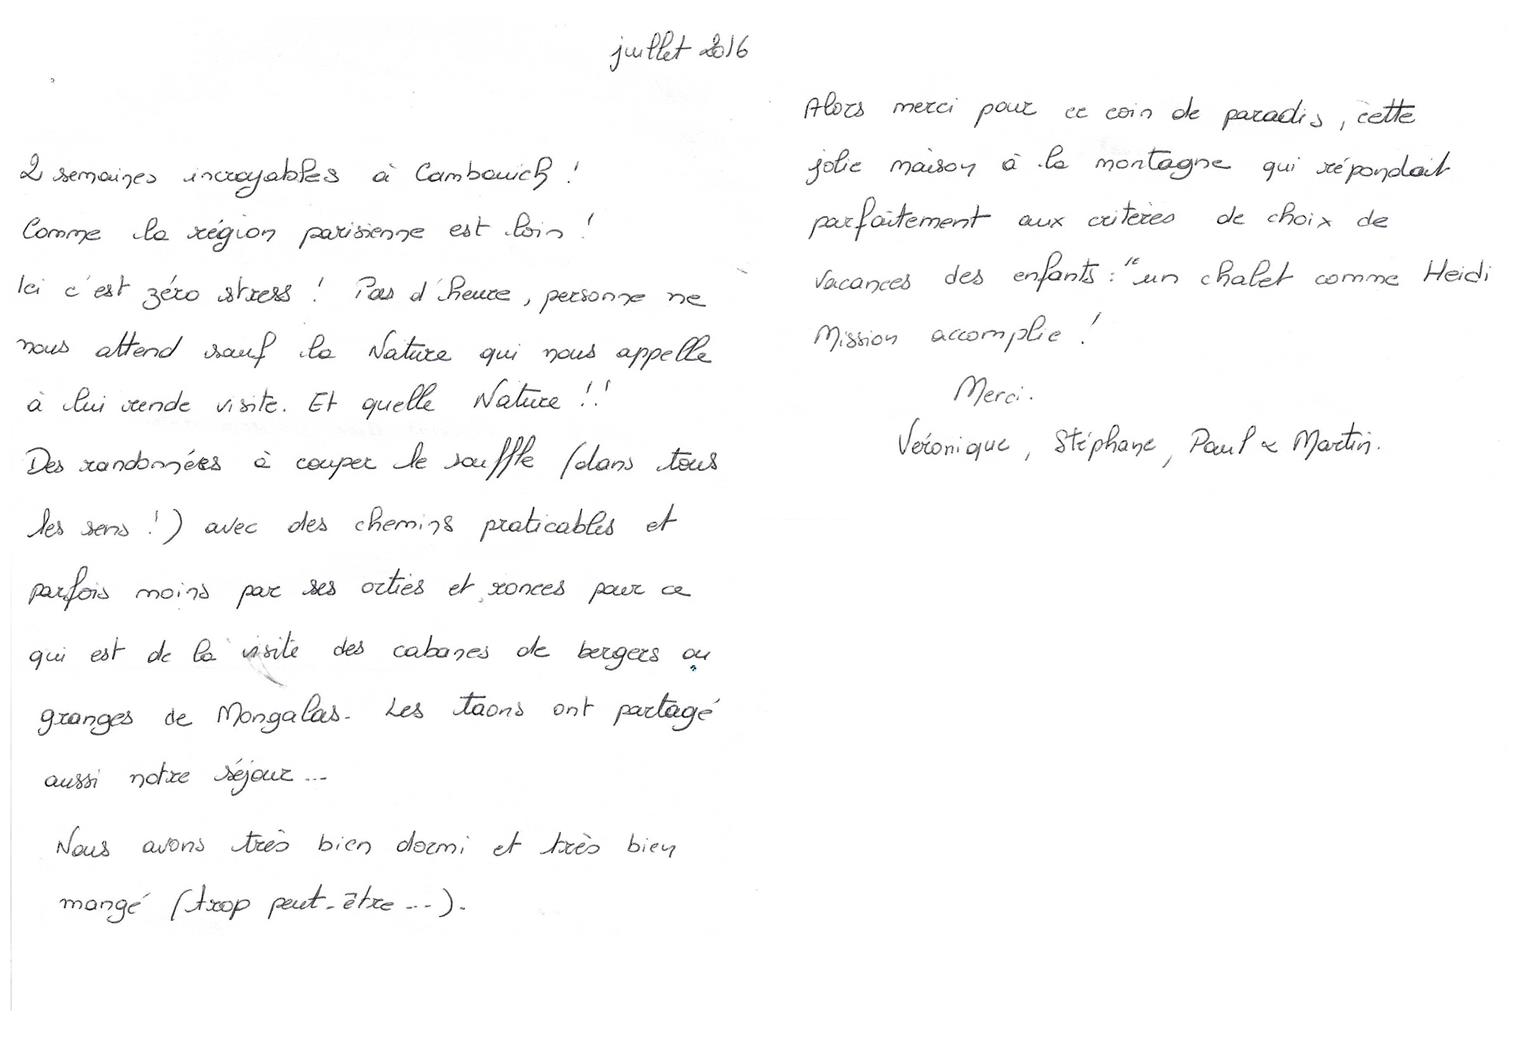 juillet 2016
2 semaines incroyables à Cambouich !
Comme la région parisienne est loin !
Ici c'est zéro stress ! Pas d'heure, personne ne
nous attend sauf la Nature qui nous appelle
à lui rende visite. Et quelle Nature !!
Des randonnées à couper le souffle (dans tous
les sens !) avec des chemins praticables et
parfois moins par ses orties et ronces pour ce
qui est de la visite des cabanes de bergers ou
granges de Mongalas. Les taons ont partagé
aussi notre séjour ...
Nous avons très bien dormi et très bien
mangé (trop peut-être ...).
Alors merci pour ce coin de paradis, cette
jolie maison à la montagne qui répondait
parfaitement aux critères de choix de
vacances des enfants : "un chalet comme Heidi
Mission accomplie !
Merci.
Véronique, Stéphane, Paul & Martin.